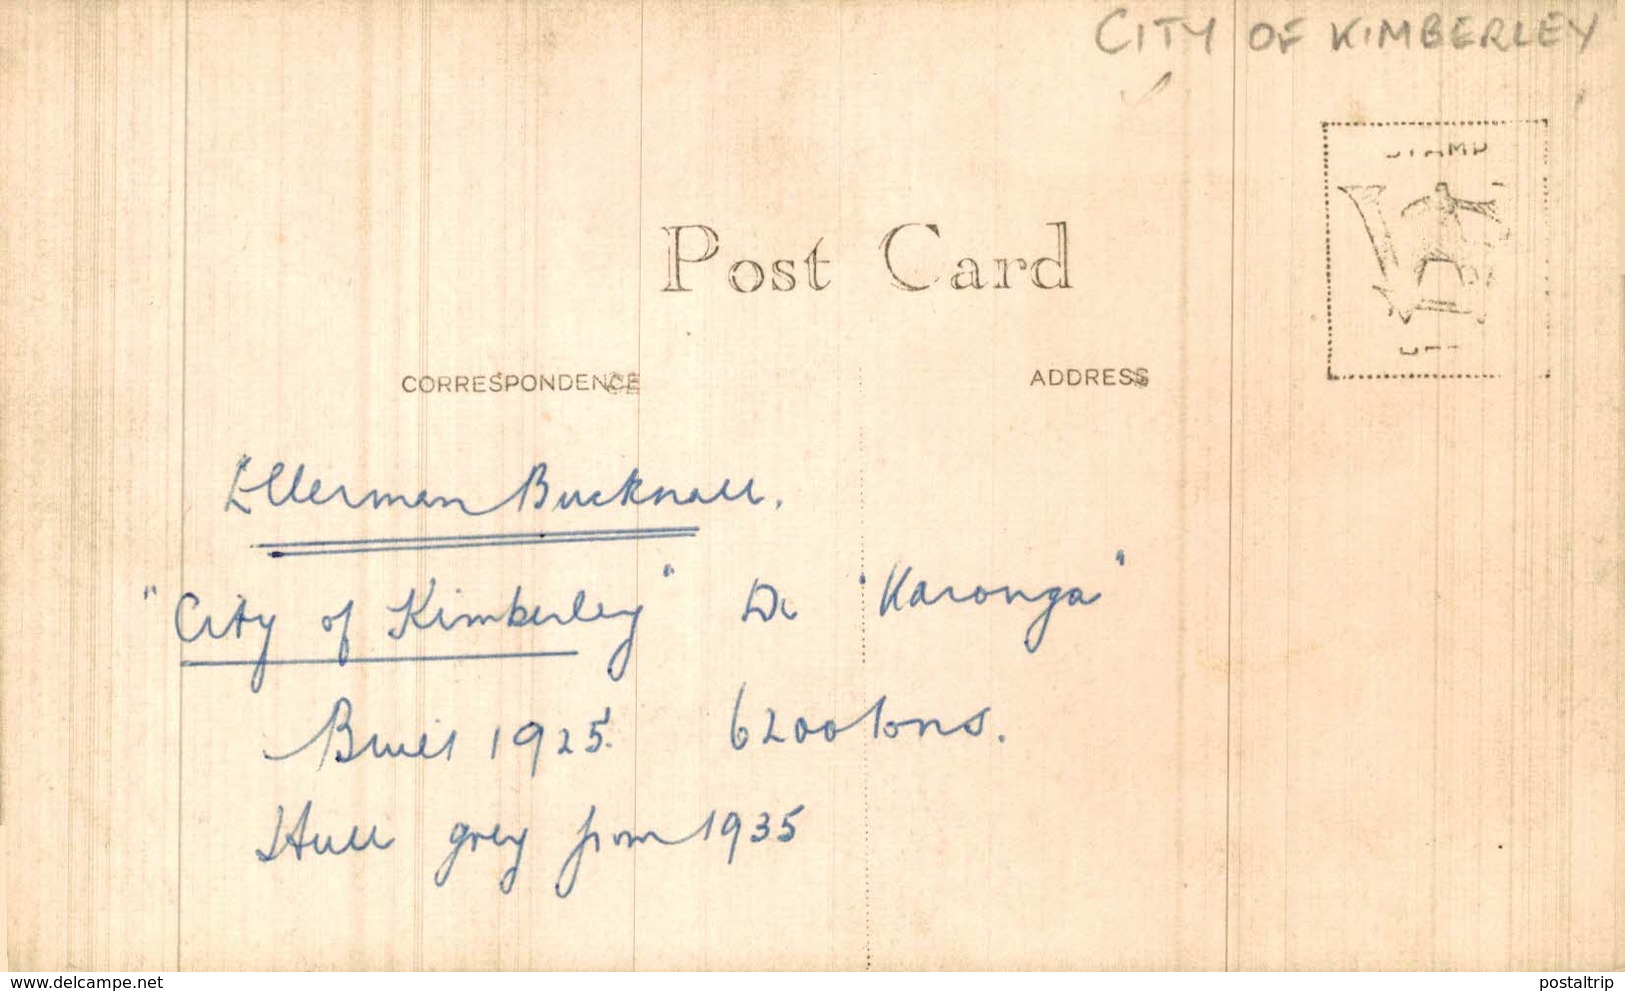 CITY OF KIMBERLEY
STAMP
Post Card
CORRESPONDENCE
ADDRESS
Ellerman Bucknall.
"City of Kimberley" Ex "Karonga"
Built 1925. 6200 tons.
Hull grey from 1935
www.delcampe.net
postaltrip